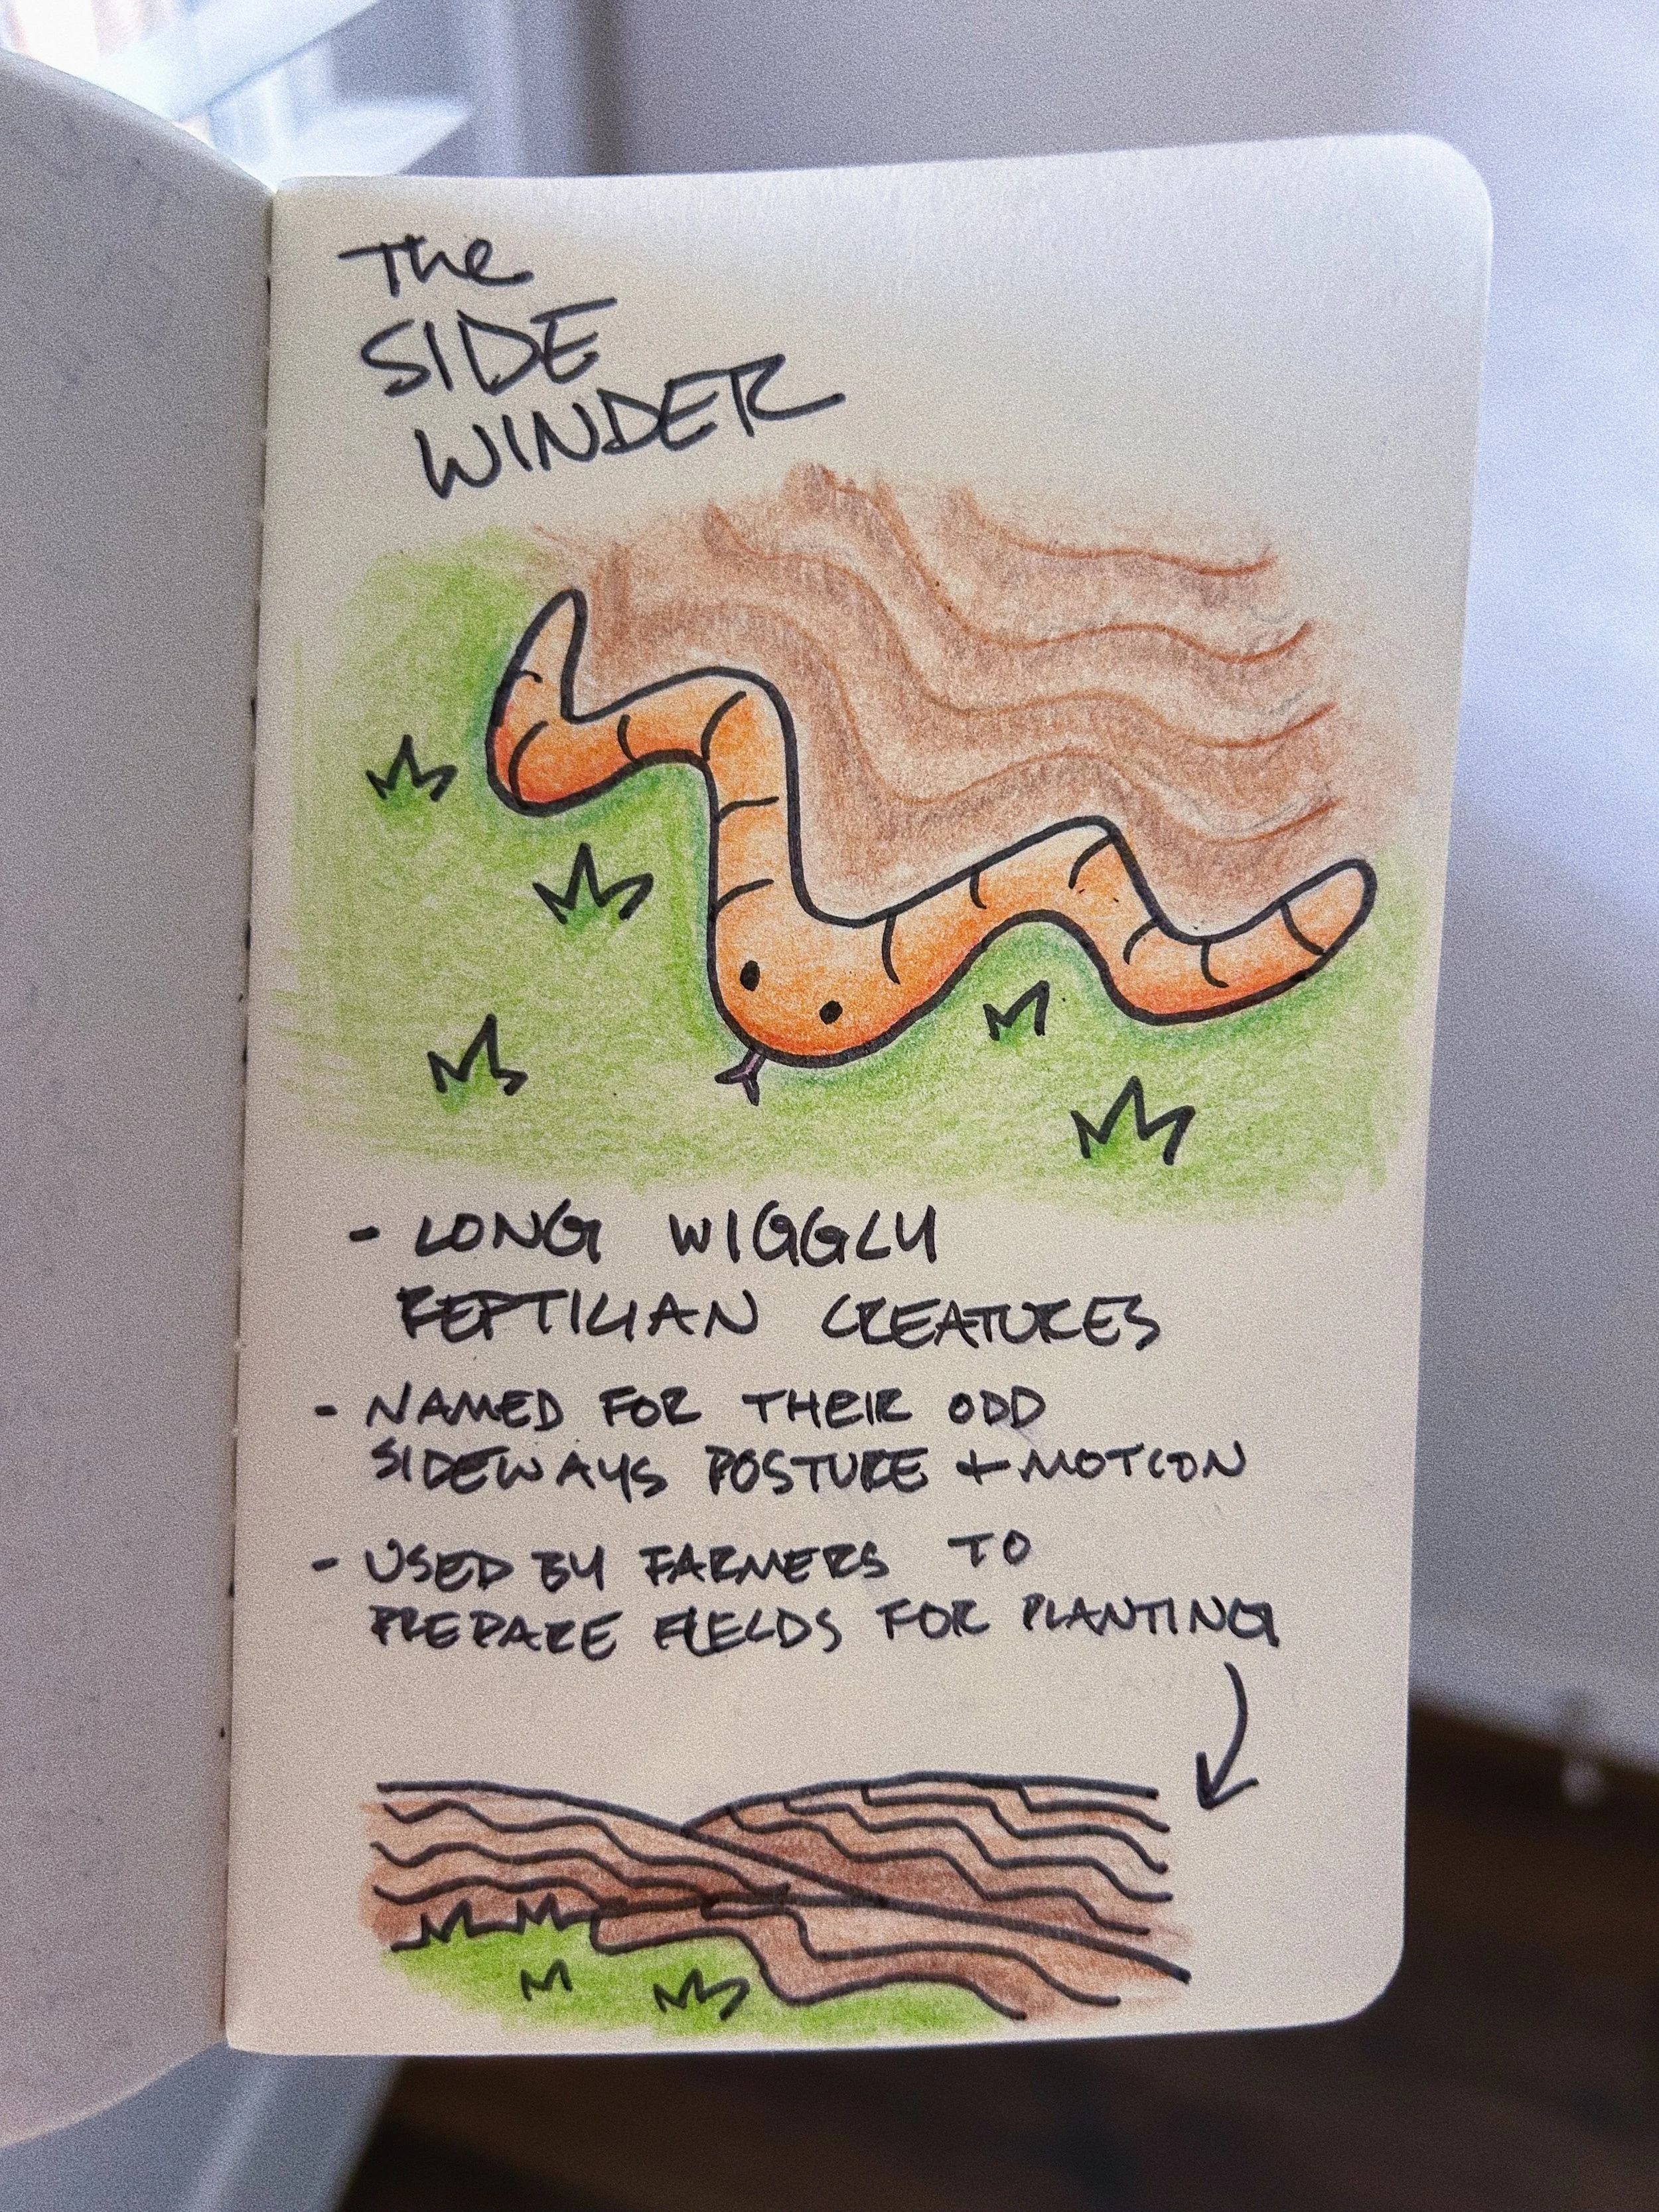 The
SIDE
WINDER
- LONG WIGGLY
REPTILIAN CREATURES
- NAMED FOR THEIR ODD
SIDEWAYS POSTURE + MOTION
- USED BY FARMERS TO
PREPARE FIELDS FOR PLANTING